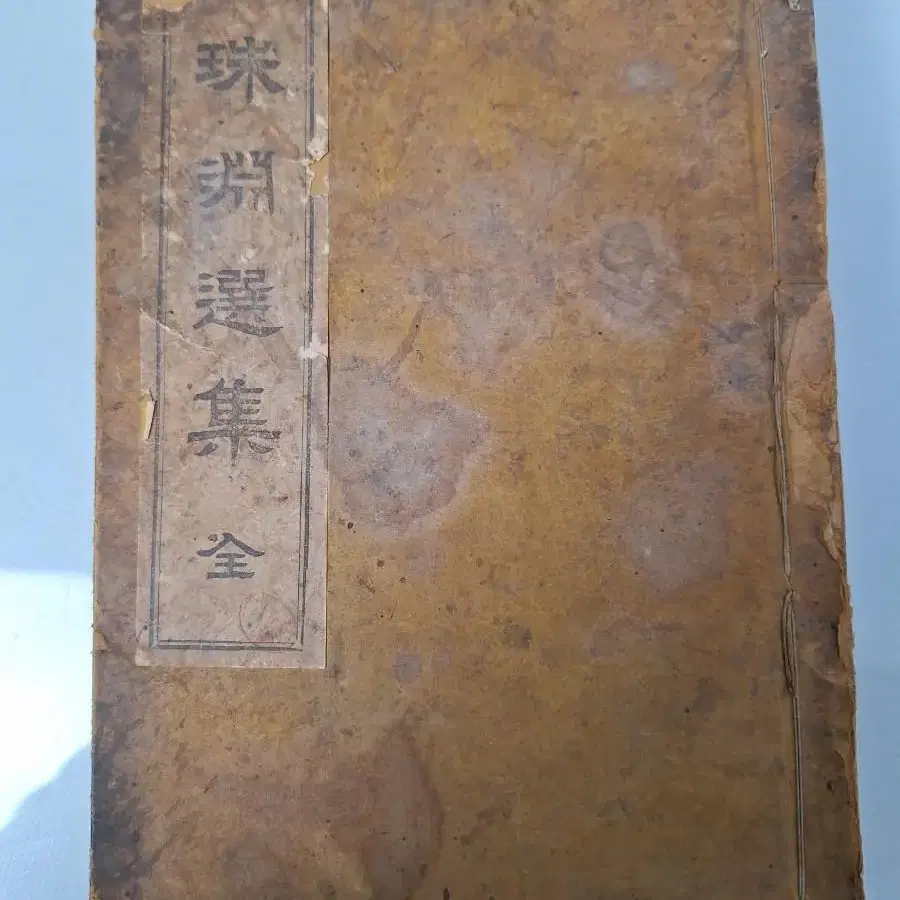 珠淵選集 全